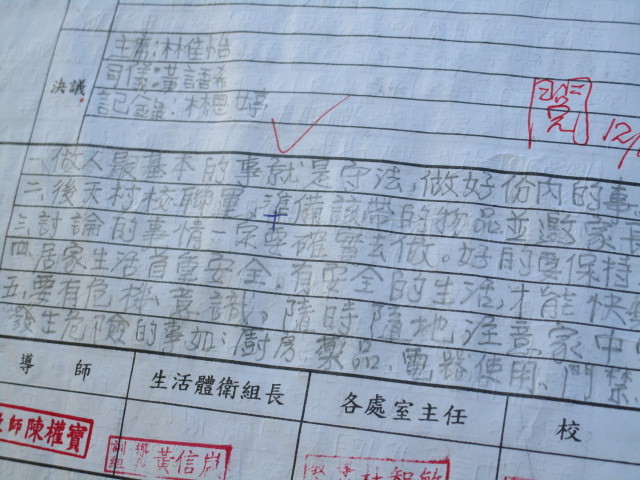 決議
主席:林佳怡
司儀:黃語
記錄:林思婷
閱
12/
一、做人最基本的事就是守法,做好份內的事
二、後天村校聯運,準備該帶的物品並邀家長
三、討論的事情一定要確實去做。好的要保持
四、居家生活首重安全,有安全的生活,才能快
五、要有危機意識,隨時隨地注意家中
發生危險的事如:廚房、藥品、電器使用、門禁、
導師
生活體衛組長
各處室主任
校
師陳權寶
訓組 導
黃信嵐
杜智敏